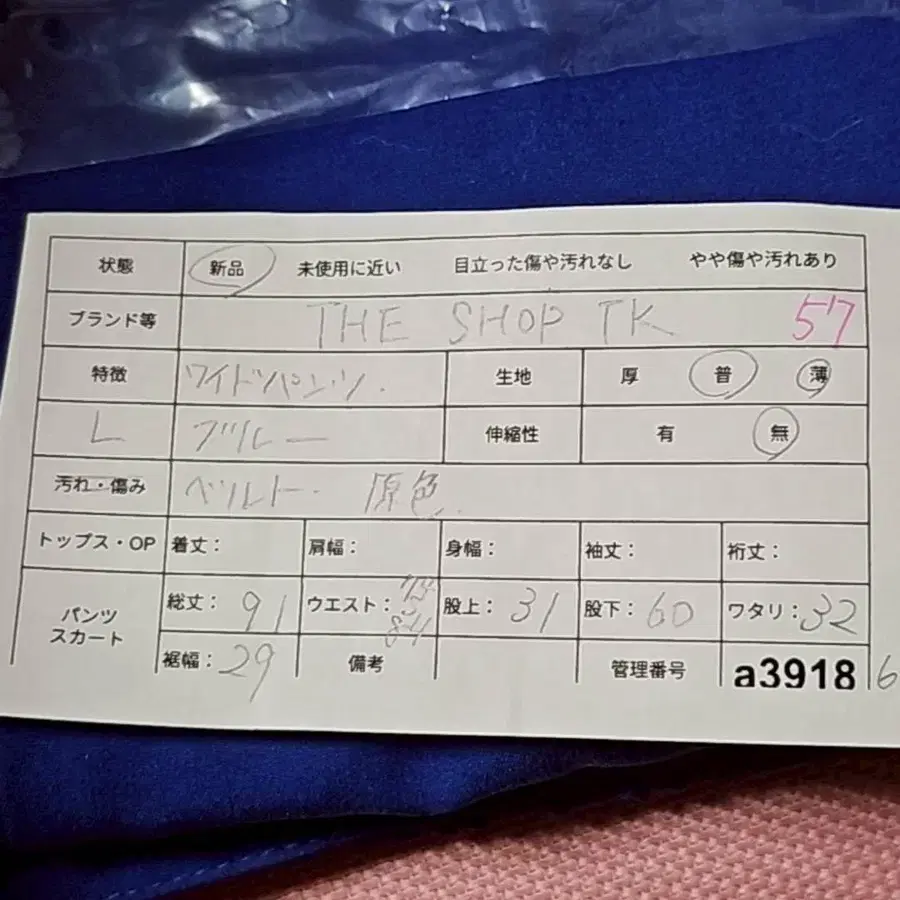 状態 新品 未使用に近い 目立った傷や汚れなし やや傷や汚れあり
ブランド等 THE SHOP TK 57
特徴 ワイドパンツ. 生地 厚 普 薄
L ブルー 伸縮性 有 無
汚れ・傷み ベルト. 原色.
トップス・OP 着丈: 肩幅: 身幅: 袖丈: 裄丈:
パンツ スカート 総丈: 91 ウエスト: 84 股上: 31 股下: 60 ワタリ: 32
裾幅: 29 備考 管理番号 a3918 6